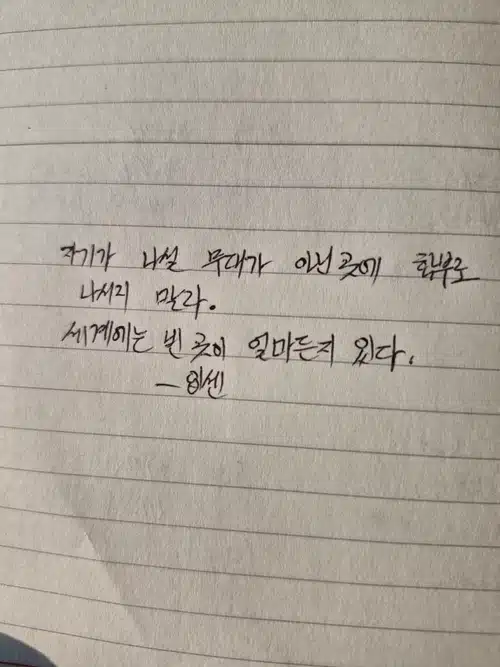 자기가 나설 무대가 아닌 곳에 함부로
나서지 말라.
세계에는 빈 곳이 얼마든지 있다.
— 입센